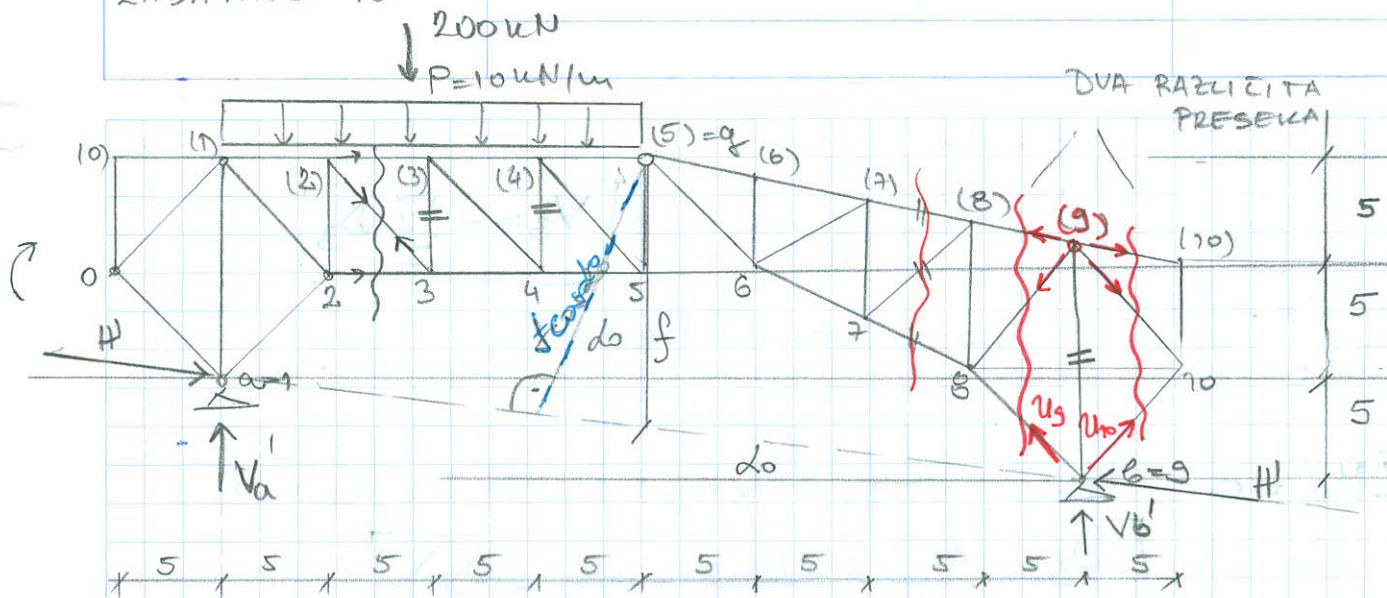 200 kN
P=10 kN/m
DVA RAZLIČITA
PRESEKA
(0) (1) (2) (3) (4) (5)=g (6) (7) (8) (9) (10)
5
0 2 3 4 5 6 7 8 10
f cosα₀ α₀ f
5
H' a=1
5
U9 U10
α₀ b=9 H'
Va' Vb'
5 5 5 5 5 5 5 5 5 5